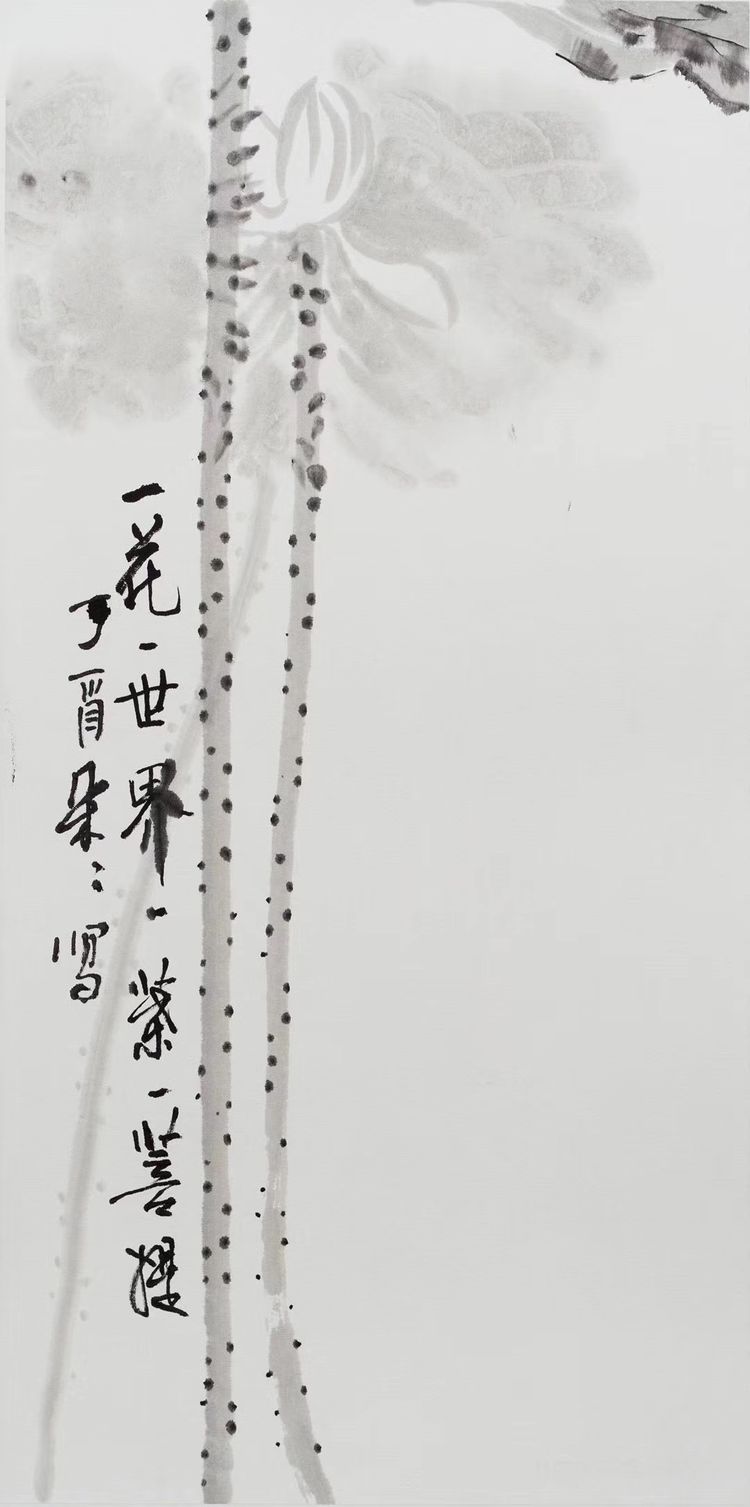 一花一世界一葉一菩提
丁酉朵々寫